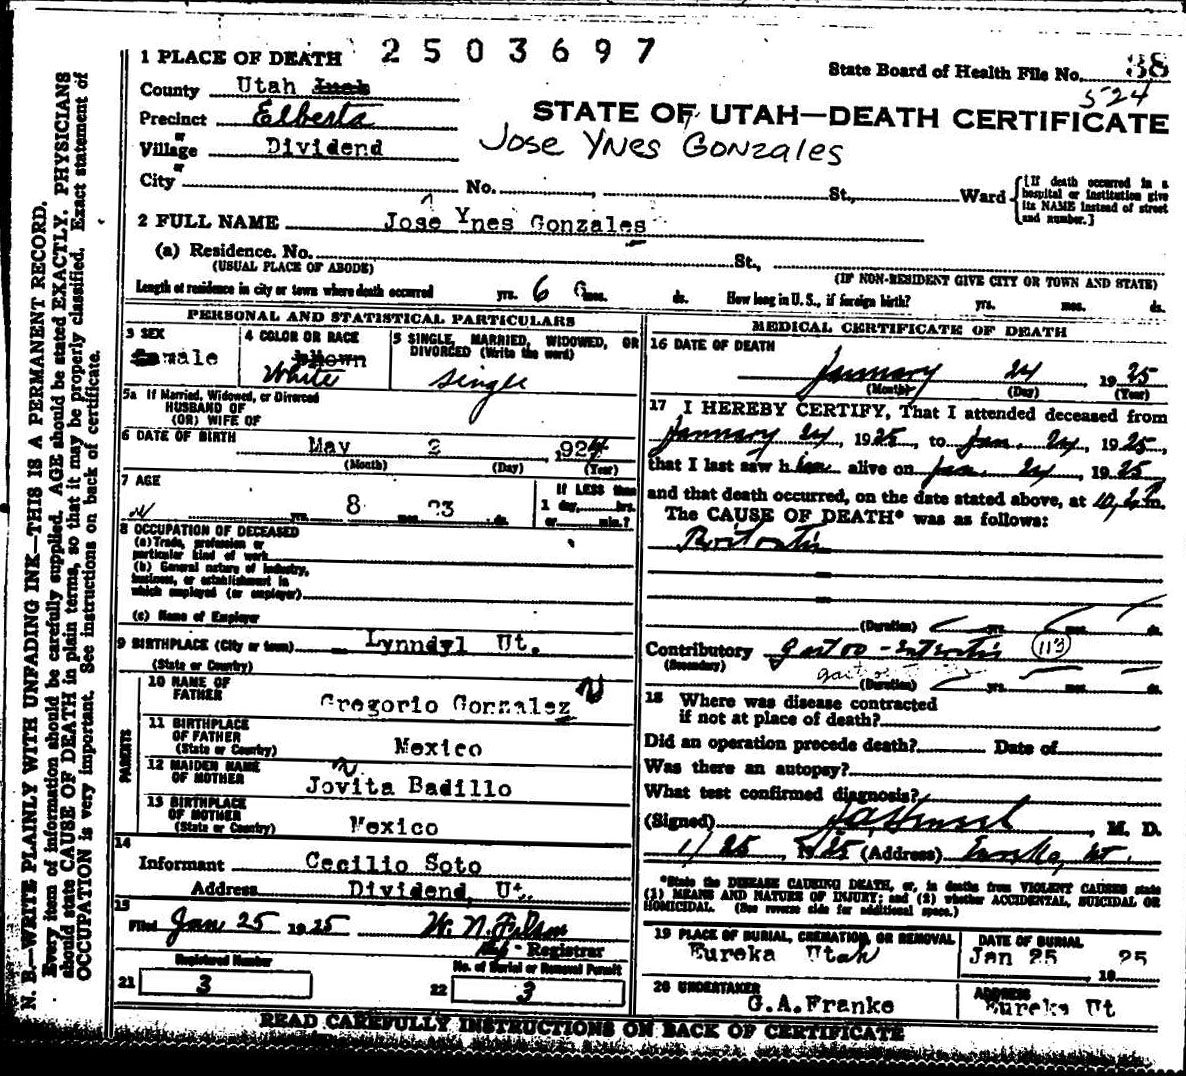 1 PLACE OF DEATH 2503697
State Board of Health File No. 38
524
County Utah Juab
STATE OF UTAH—DEATH CERTIFICATE
Precinct Elberta
or
Village Dividend
Jose Ynes Gonzales
or
City No. , St., Ward {[If death occurred in a hospital or institution give its NAME instead of street and number.]
2 FULL NAME Jose Ynes Gonzales
(a) Residence. No. St.,
(USUAL PLACE OF ABODE) (IF NON-RESIDENT GIVE CITY OR TOWN AND STATE)
Length of residence in city or town where death occurred yrs. 6 mos. ds. How long in U. S., if foreign birth? yrs. mos. ds.
PERSONAL AND STATISTICAL PARTICULARS
3 SEX male
4 COLOR OR RACE Brown White
5 SINGLE, MARRIED, WIDOWED, OR DIVORCED (Write the word) Single
5a If Married, Widowed, or Divorced
HUSBAND OF
(OR) WIFE OF
6 DATE OF BIRTH May 2 1924
(Month) (Day) (Year)
7 AGE yrs. 8 mos. 23 ds.
If LESS than
1 day, hrs.
or min.?
8 OCCUPATION OF DECEASED
(a) Trade, profession or
particular kind of work
(b) General nature of industry,
business, or establishment in
which employed (or employer)
(c) Name of Employer
9 BIRTHPLACE (City or town) Lynndyl Ut.
(State or Country)
PARENTS
10 NAME OF FATHER Gregorio Gonzalez
11 BIRTHPLACE OF FATHER (State or Country) Mexico
12 MAIDEN NAME OF MOTHER Jovita Badillo
13 BIRTHPLACE OF MOTHER (State or Country) Mexico
14
Informant Cecilio Soto
Address Dividend, Ut.
15
Filed Jan 25 1925 W. N.
Registrar
Registered Number No. of Burial or Removal Permit
21 3 22 3
MEDICAL CERTIFICATE OF DEATH
16 DATE OF DEATH
January 24 1925
(Month) (Day) (Year)
17 I HEREBY CERTIFY, That I attended deceased from
January 24, 1925, to Jan. 24, 1925,
that I last saw him alive on Jan. 24 1925
and that death occurred, on the date stated above, at m.
The CAUSE OF DEATH* was as follows:
(Duration) yrs. mos. ds.
Contributory 113
(Secondary)
(Duration) yrs. mos. ds.
18 Where was disease contracted
if not at place of death?
Did an operation precede death? Date of
Was there an autopsy?
What test confirmed diagnosis?
(Signed) , M. D.
1/25, 1925 (Address) Eureka, Ut.
*State the DISEASE CAUSING DEATH, or, in deaths from VIOLENT CAUSES state
(1) MEANS AND NATURE OF INJURY; and (2) whether ACCIDENTAL, SUICIDAL OR
HOMICIDAL. (See reverse side for additional space.)
19 PLACE OF BURIAL, CREMATION, OR REMOVAL DATE OF BURIAL
Eureka Utah Jan 25 25
, 19
20 UNDERTAKER ADDRESS
G.A.Franke Eureka Ut
READ CAREFULLY INSTRUCTIONS ON BACK OF CERTIFICATE
N. B.—WRITE PLAINLY WITH UNFADING INK—THIS IS A PERMANENT RECORD.
Every item of information should be carefully supplied. AGE should be stated EXACTLY. PHYSICIANS
should state CAUSE OF DEATH in plain terms, so that it may be properly classified. Exact statement of
OCCUPATION is very important. See instructions on back of certificate.